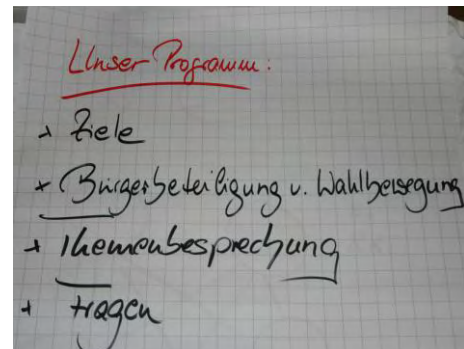 Unser Programm:
+ Ziele
+ Bürgerbeteiligung u. Wahlbewegung
+ Themenbesprechung
+ Fragen